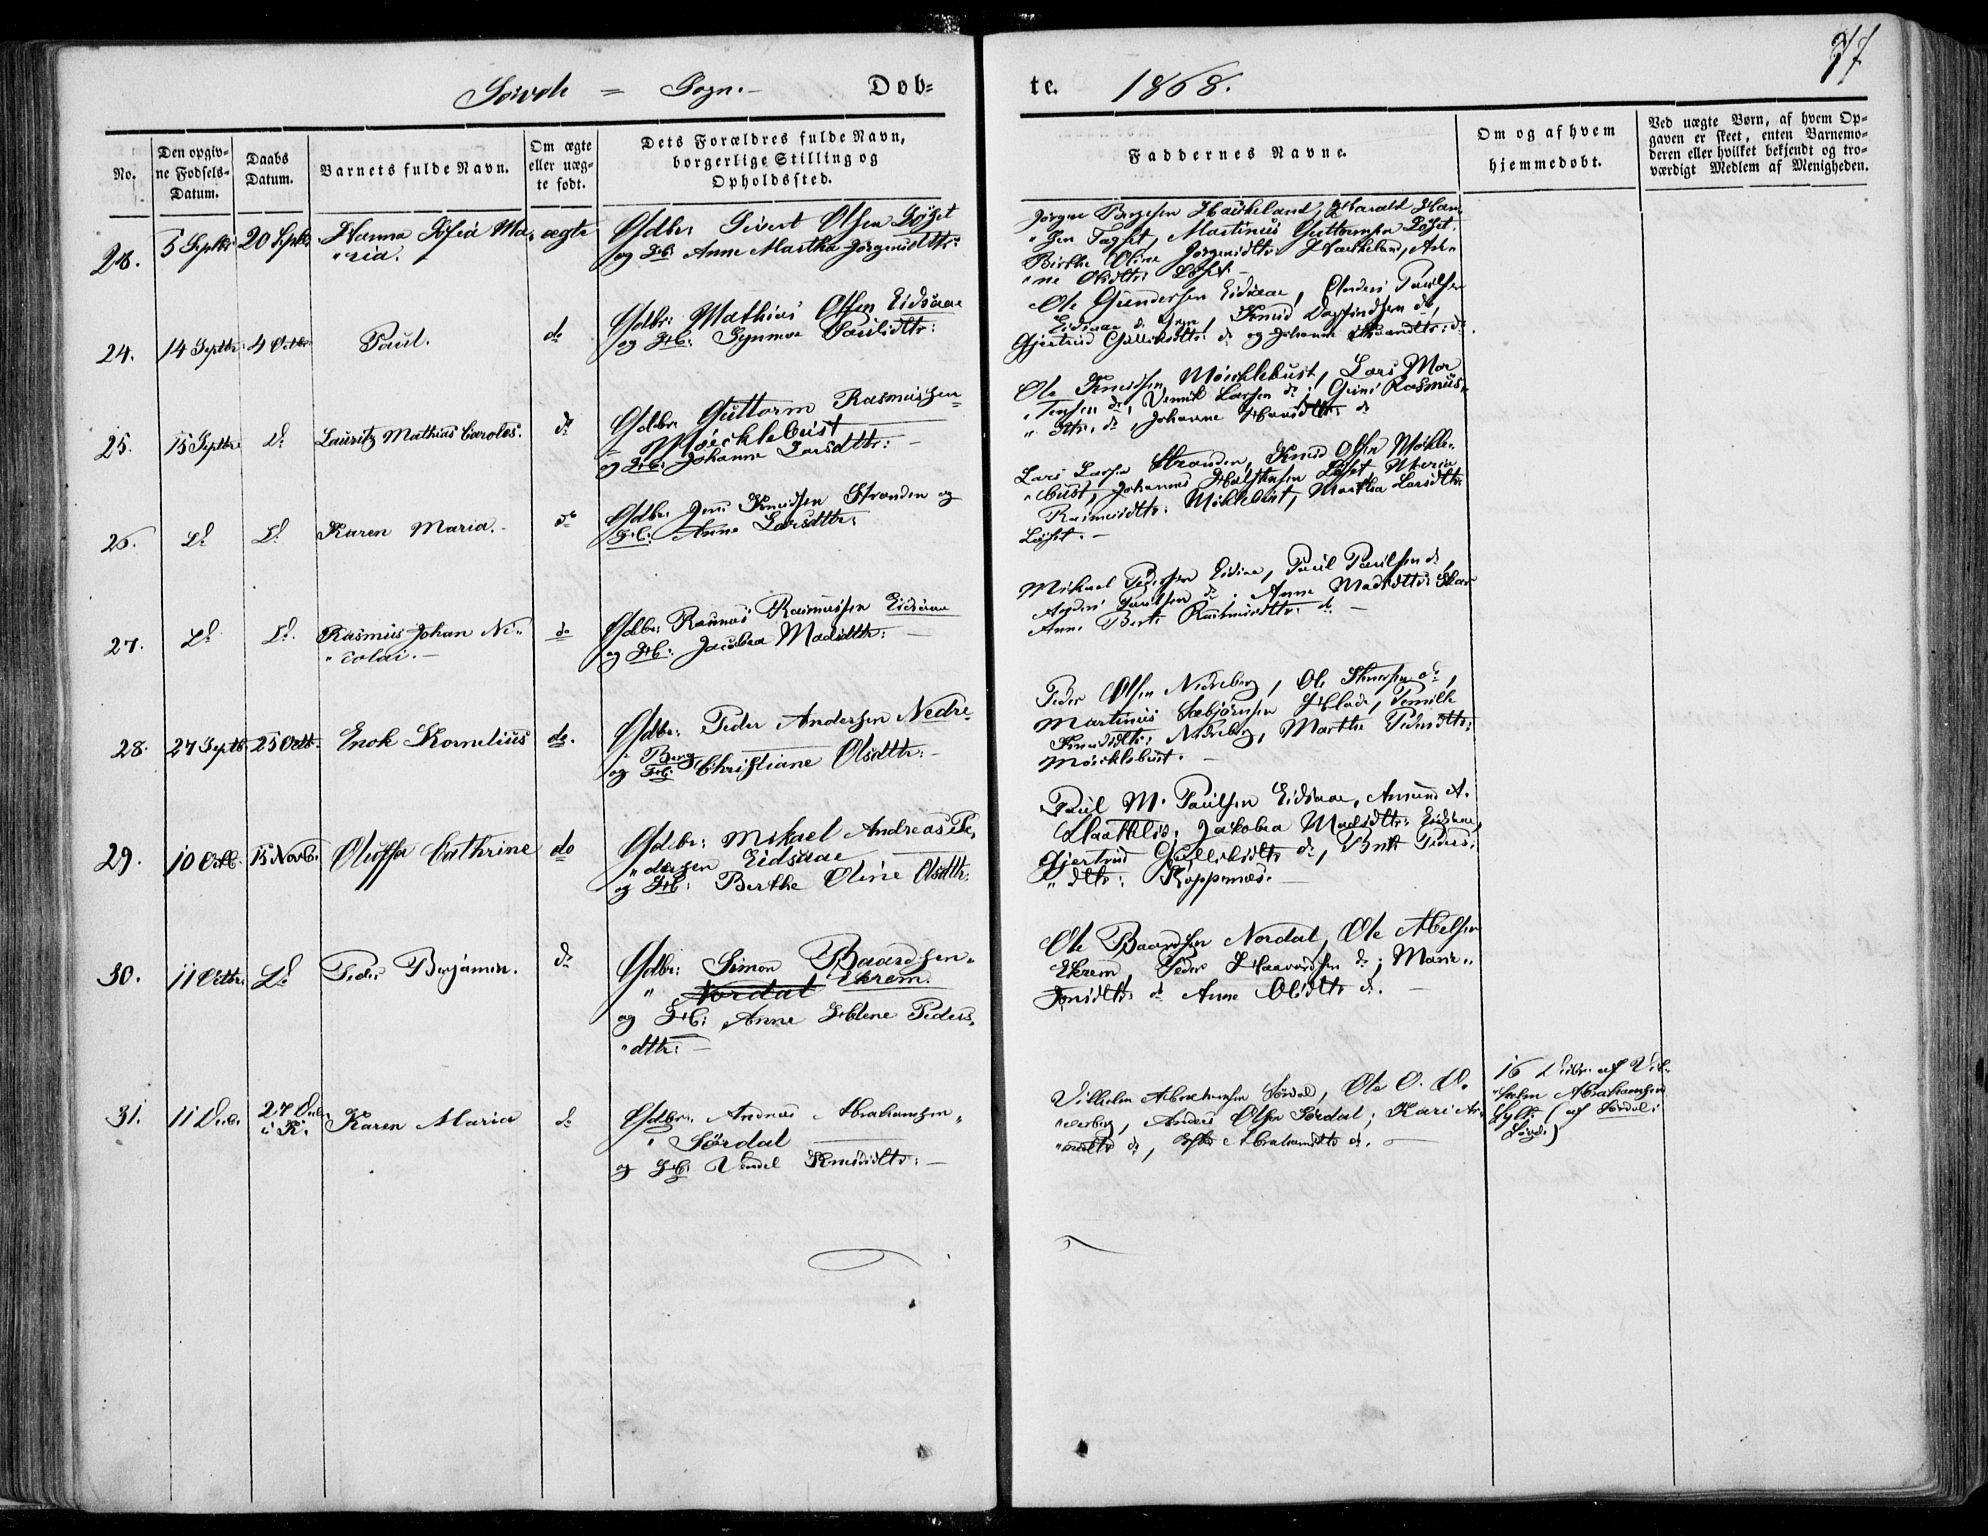 77
Sövde = Sogn.
Døb=
te.
1868.
No.
Den opgiv-
ne Fødsels-
Datum.
Daabs
Datum.
Barnets fulde Navn.
Om ægte
eller uæg-
te født.
Dets Forældres fulde Navn,
borgerlige Stilling og
Opholdssted.
Faddernes Navne.
Om og af hvem
hjemmedøbt.
Ved uægte Børn, af hvem Op-
gaven er skeet, enten Barnemo-
deren eller hvilket bekjendt og tro-
værdigt Medlem af Menigheden.
23. 5 Septbr 20 Septbr Hanna Sofia Ma-
"ria.
ægte
Gdbr: Sivert Olsen Löset
og H: Anne Martha Jörgensdttr:
Jörgen Börgesen Haukeland, Harald Han-
"sen Löset, Martinus Guttormsen Löset.
Birthe Oline Jörgensdtr: Haukeland, An-
"ne Olsdtr: Löset.
24. 14 Septbr: 4 Octbr Paul. do
Gdbr: Mathias Olsen Eidsaae
og H: Synnöve Paulsdttr:
Ole Gundersen Eidsaae, Anders Paulsen
Eidsaae, Knud Dagfindsen do,
Gjertrud Gulliksdtr: do og Johanne dtr: do.
25. 15 Septbr Do Lauritz Mathias Carolus. do
Gdbr: Guttorm Rasmussen
Möcklebust
og H: Johanne Larsdttr: -
Ole Knudsen Möcklebust, Lars Mor-
"tensen do, Larsen do; Rasmus-
"dtr. do, Johanne dtr: do
26. Do Do Karen Maria. - do
Gdbr: Jens Knudsen Stranden og
H: Anne Larsdttr:
Lars Larsen Stranden, Knud Olsen Möckle-
"bust, Johannes Löset, Maria
Rasmusdtr: Möcklebust, Martha Larsdtr:
Löset. -
27. Do Do. Rasmus Johan Ni-
"colai. - do
Gdbr: Rasmus Rasmussen Eidsaae
og H: Jacobea Madsdttr:
Mikael Pedersen Eidsaae, Paul Paulsen do,
Anders Paulsen do, Anne Madsdtr:
Anne Berte Rasmusdtr: do -
28. 27 Septb. 25 Octb. Enok Kornelius do.
Gdbr: Peder Andersen Nedre-
" Berg
og H: Christiane Olsdttr: -
Peder Olsen Nedreberg, Ole do,
Martinus Sæbjörnsen, Pernille
Knudsdtr: Nedreberg, Marthe Pedersdtr:
Möcklebust. -
29. 10 Octb. 15 Novbr. Oluffa Cathrine do
Gdbr: Mikael Andreas Pe-
"dersen Eidsaae
og H: Berthe Oline Olsdttr:
Paul M. Paulsen Eidsaae, Amund A.
Jakobea Madsdtr: Eidsaae,
Gjertrud Gulliksdtr do, Berte Peders-
"dtr: Koppenæs. -
30. 11 Octbr. Do Peder Benjamin. do
Gdbr: Simon Baardsen
" Nordal Ekrem.
og H: Anne Helene Peders-
"dttr: -
Ole Baardsen Nordal, Ole Abelsen
Ekrem, Peder Haavardsen do; Marie
Jonsdtr: do Anne Olsdtr do. -
31. 11 Decb. 27 Decb.
i K. Karen Maria do
Gdbr: Andreas Abrahamsen
i Sördal
og H: Vendel Knudsdtr: -
Vilhelm Abrahamsen Sördal, Ole O.
Anders Olsen Sördal; Kari
do, Abrahamsdtr do. -
16 Decbr. af Vil-
"helm Abrahamsen
(af Sördal i
Sövde)